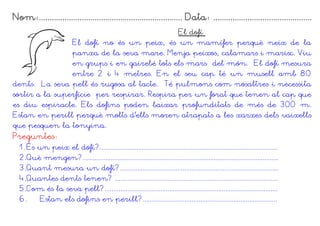 Nom:................................................................ Data: ............................................
El dofí
El dofí no és un peix, és un mamífer perquè neix de la
panxa de la seva mare. Menja peixos, calamars i marisc. Viu
en grups i en gairebé tots els mars del món. El dofí mesura
entre 2 i 4 metres. En el seu cap té un musell amb 80
dents. La seva pell és rugosa al tacte. Té pulmons com nosaltres i necessita
sortir a la superfície per respirar. Respira per un forat que tenen al cap que
es diu espiracle. Els dofins poden baixar profunditats de més de 300 m.
Estan en perill perquè molts d'ells moren atrapats a les xarxes dels vaixells
que pesquen la tonyina.
Preguntes:
1.És un peix el dofí?................................................................................
2.Què mengen? ........................................................................................
3.Quant mesura un dofí?.......................................................................
4.Quantes dents tenen? .........................................................................
5.Com és la seva pell?.............................................................................
6. Estan els dofins en perill?............................................................